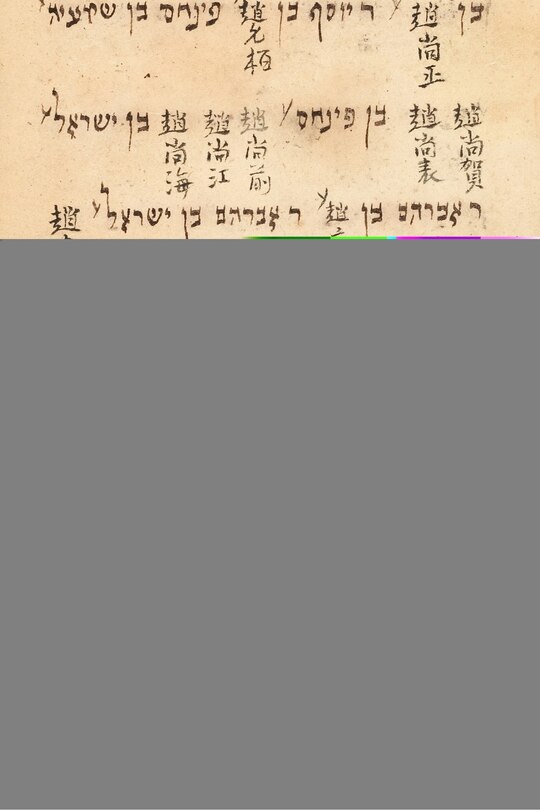 בן 趙尚正 ר יוסף בן 趙允栢 פינחס בן שמעיה
趙尚賀 趙尚表 בן פינחס 趙尚前 趙尚江 趙尚海 בן ישראל
ר אברהם בן 趙 ר אברהם בן ישראל 趙